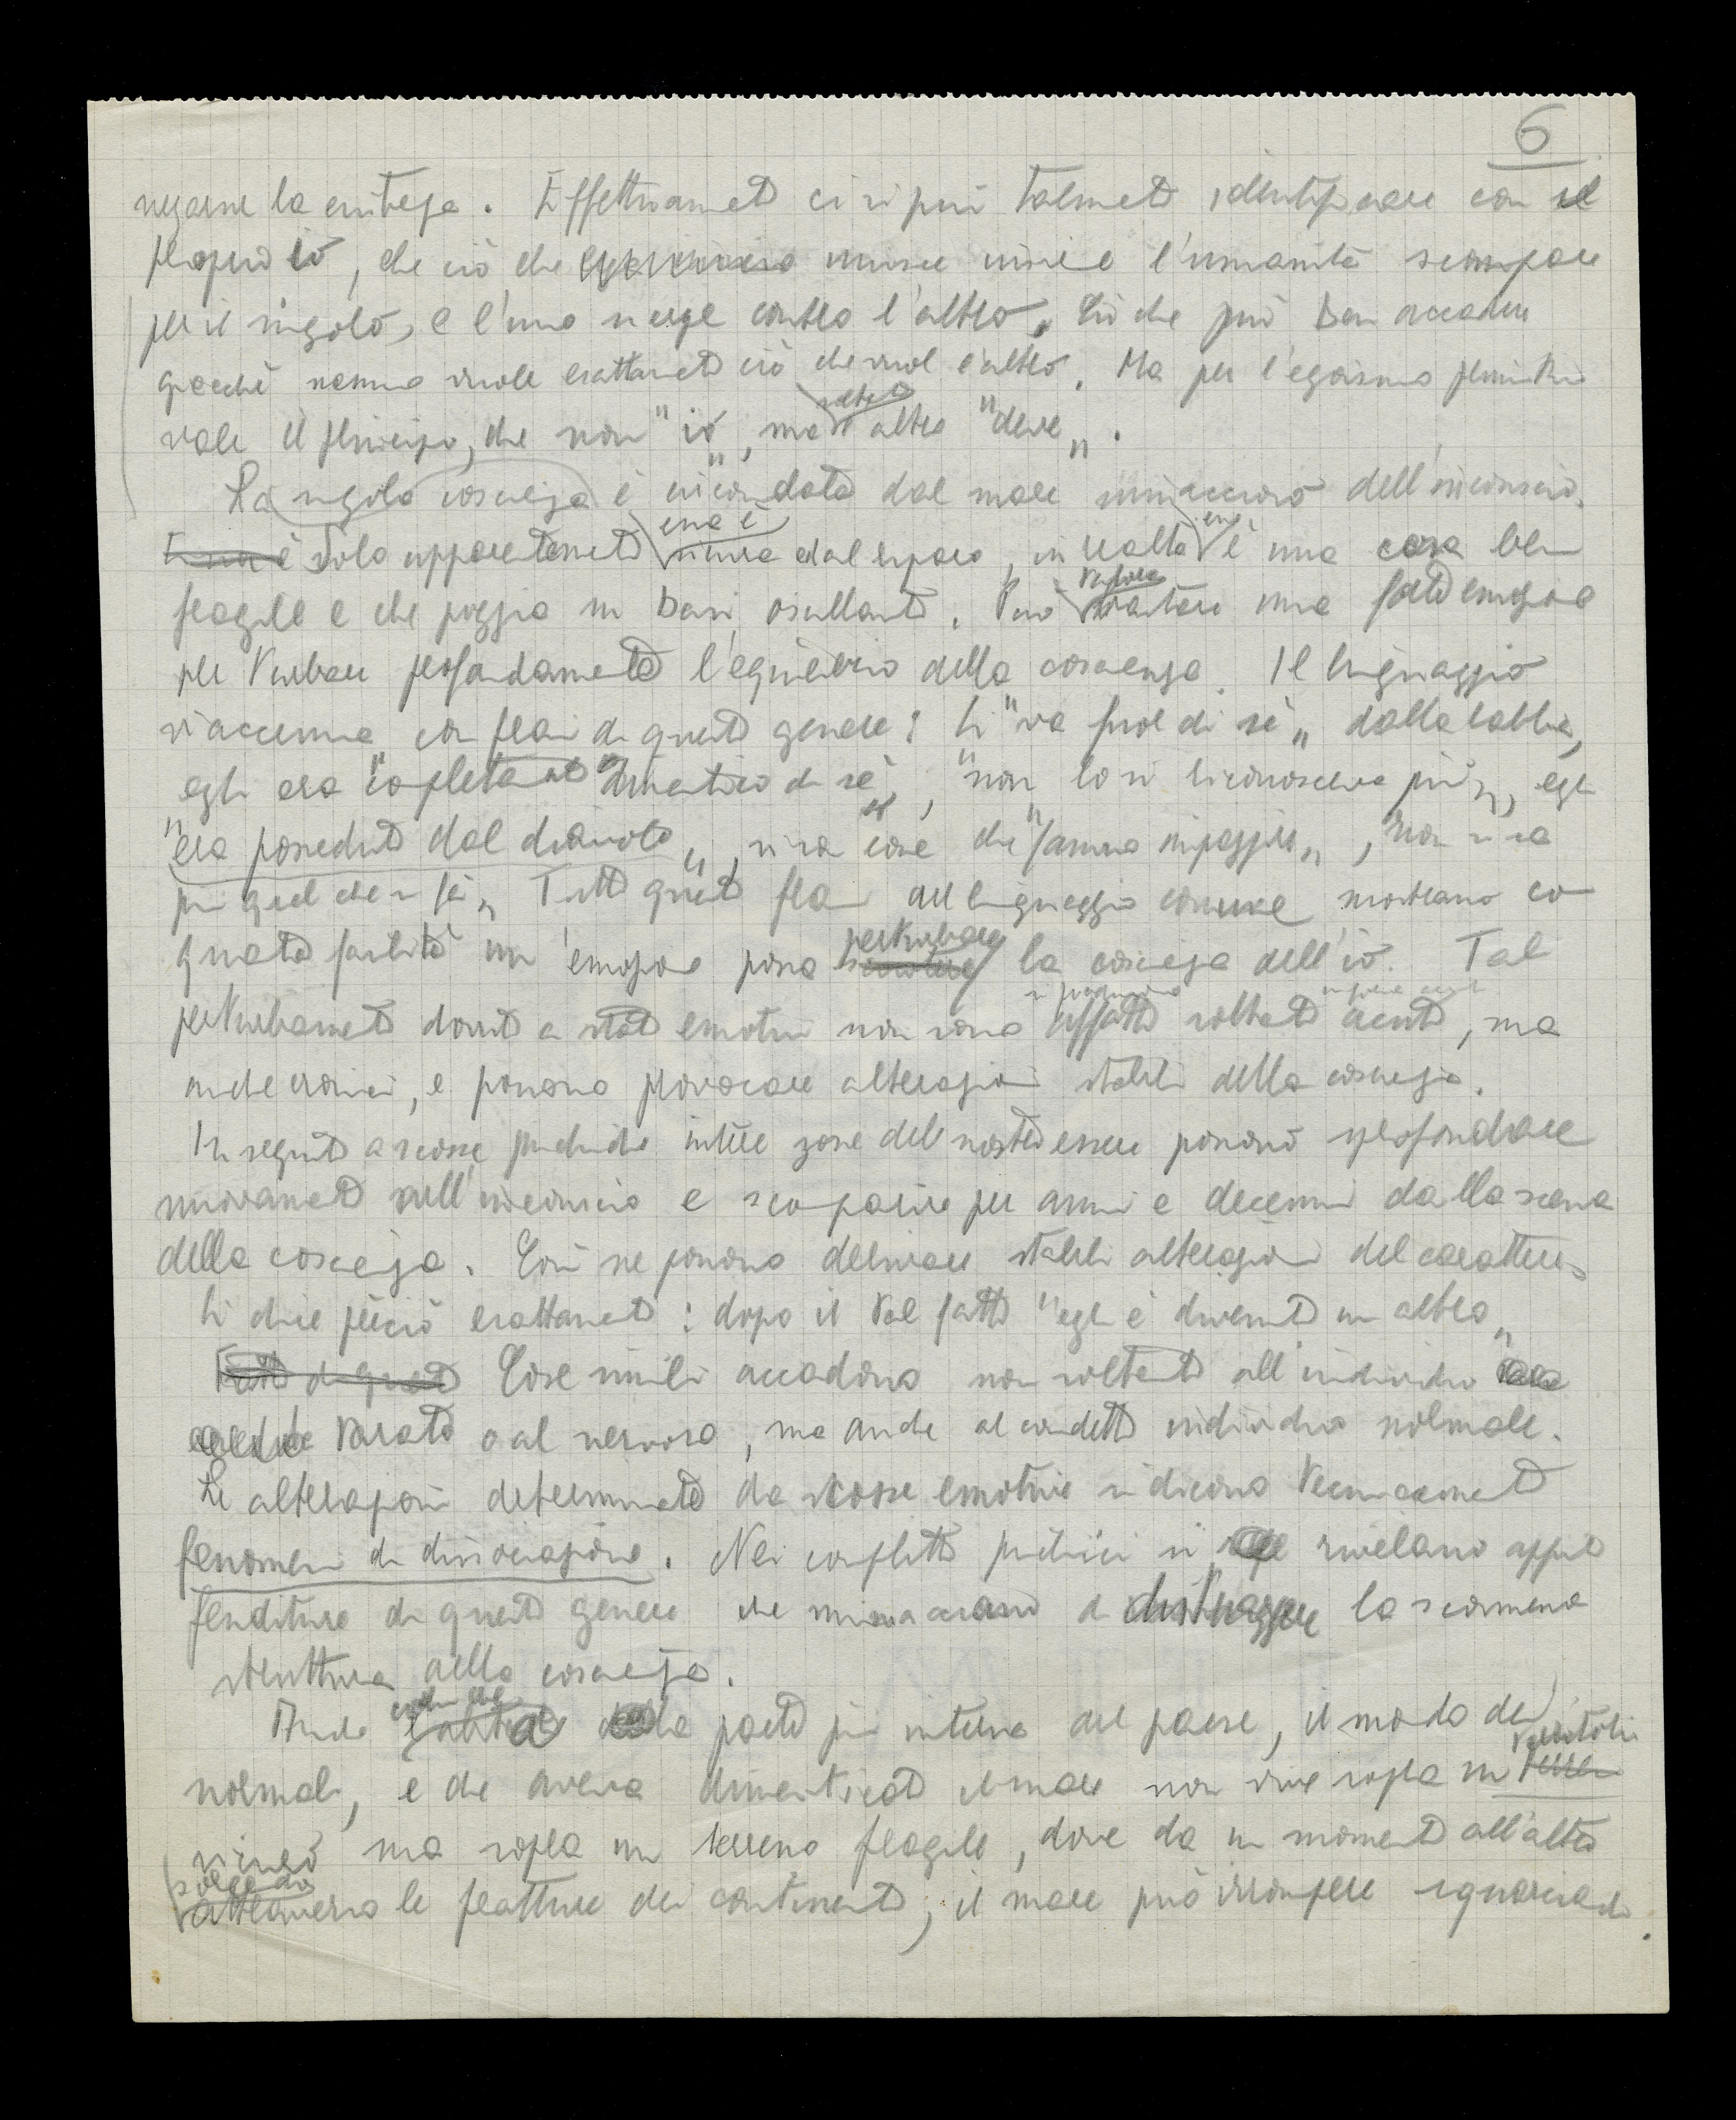 6
negarne la esistenza. Effettivamente ci si può talmente identificare con il
proprio io, che ciò che unisce insieme l'umanità scompare
per il singolo, e l'uno si erge contro l'altro. Ciò che può ben accadere
giacché nessuno vuole esattamente ciò che vuol l'altro. Ma per l'egoismo primitivo
vale il principio, che non "io", ma l'altro "deve".
soltanto
La singola coscienza è circondata dal mare minaccioso dell'inconscio.
essa è
essa
Essa è Solo apparentemente sicura dal riparo, in realtà è una cosa ben
fragile e che poggia su basi oscillanti. Può bastare una forte emozione
talora
per turbare profondamente l'equilibrio della coscienza. Il linguaggio
vi accenna con frasi di questo genere: si "va fuor di sè" dalla rabbia,
egli era "completamente dimentico di sè", "non lo si riconosceva più", egli
"era posseduto dal diavolo", vi son cose che "fanno impazzire", "non si sa
più quel che si fa". Tutte queste frasi del linguaggio comune mostrano con
quanta facilità un'emozione possa la coscienza dell'io. Tali
perturbare
perturbamenti dovuti a stati emotivi non sono affatto soltanto acuti, ma
si producono
anche cronici, e possono provocare alterazioni stabili della coscienza.
In seguito a scosse psichiche intere zone del nostro essere possono sprofondare
nuovamente nell'inconscio e scomparire per anni e decenni dalla scena
della coscienza. Così ne possono derivare stabili alterazioni del carattere.
Si dice perciò esattamente: dopo il tal fatto "egli è divenuto un altro"
Fatti di questo Cose simili accadono non soltanto all'individuo
tarato o al nervoso, ma anche al cosidetto individuo normale.
Le alterazioni determinate da scosse emotive si dicono tecnicamente
fenomeni di dissociazione. Nei conflitti psichici si rivelano appunto
fenditure di questo genere che minacciano di distruggere la scommessa
struttura della coscienza.
Anche colui che abita la parte più interna del paese, il mondo dei
normali, e che aveva dimenticato il mare non vive sopra un territorio
sicuro ma sopra un terreno fragile, dove da un momento all'altro
attraverso le fratture dei continenti, il mare può irrompere squarciando.